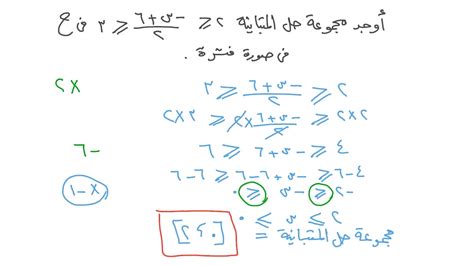 أوجد مجموعة حل المتباينة ٢ ≥ (-س+٦)/٢ ≥ ٣ في ح
في صورة فترة .
٢× ٢ ≥ (-س+٦)/٢ ≥ ٣
٢×٢ ≥ ٢×(-س+٦)/٢ ≥ ٣×٢
-٦ ٤ ≥ -س+٦ ≥ ٦
٤-٦ ≥ -س+٦-٦ ≥ ٦-٦
×-١ -٢ ≥ -س ≥ ٠
٢ ≥ س ≥ ٠
مجموعة حل المتباينة = [٠،٢]